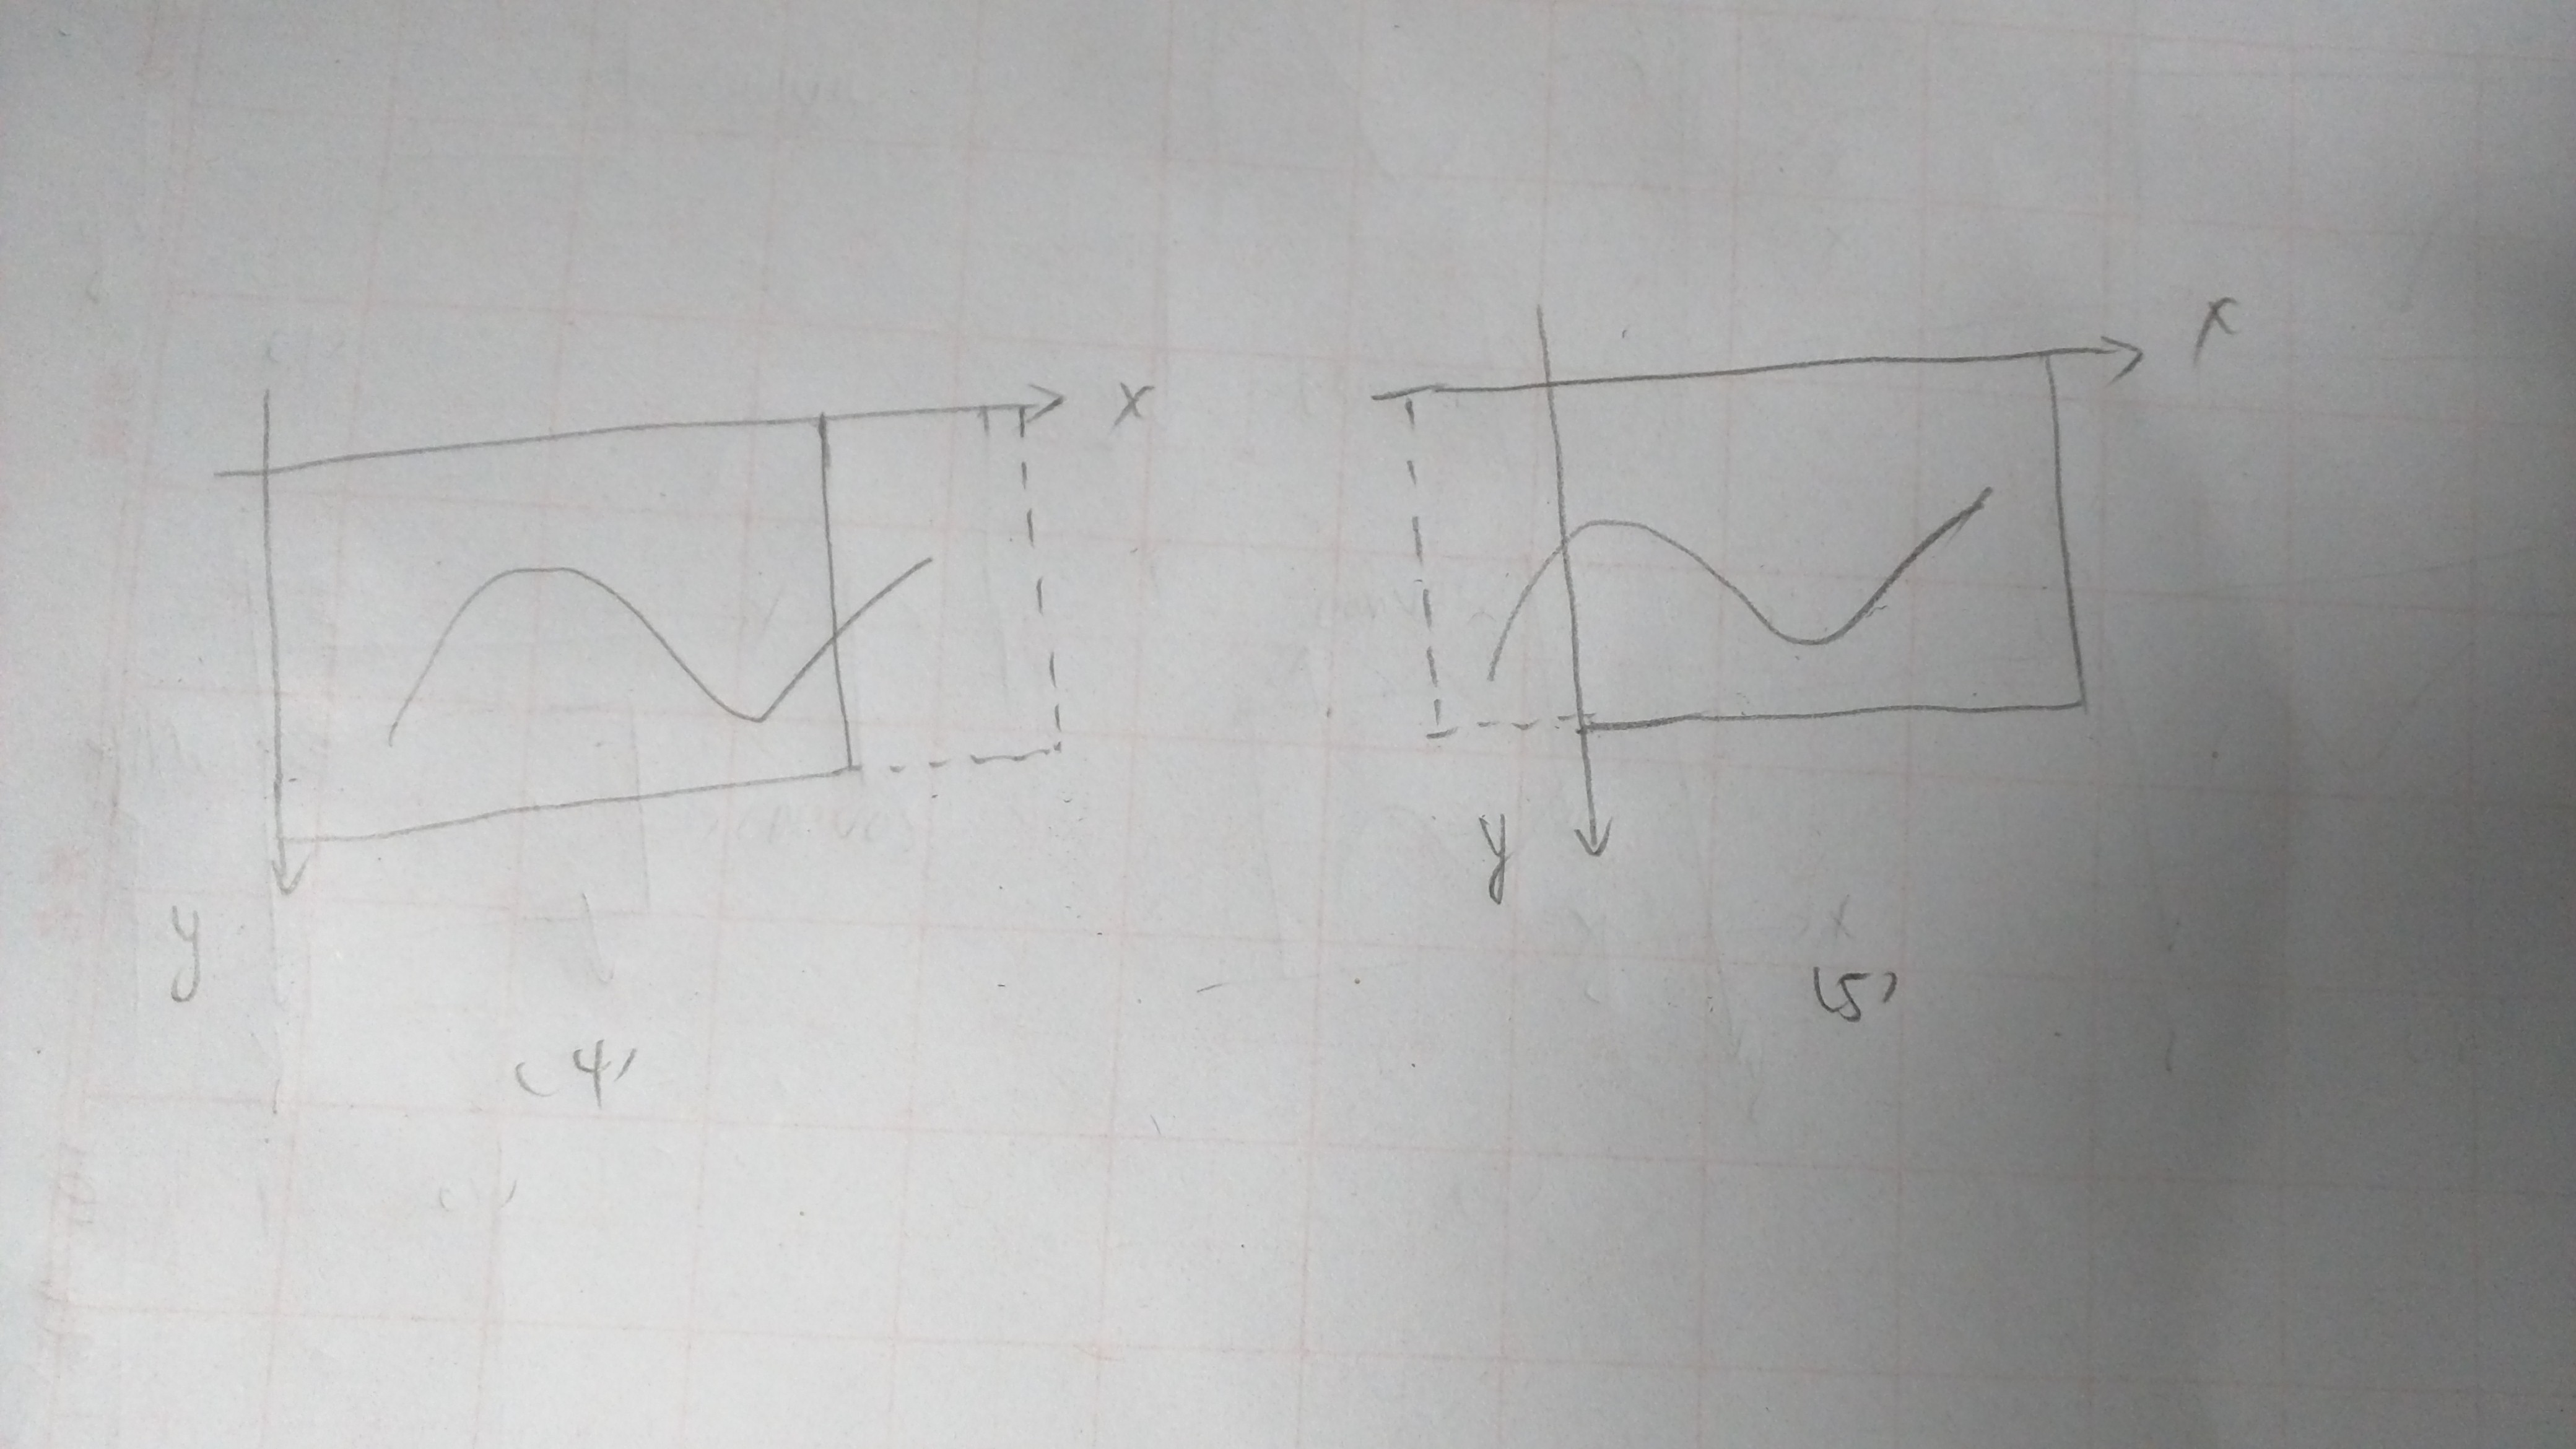 x
y
(4)
x
y
(5)